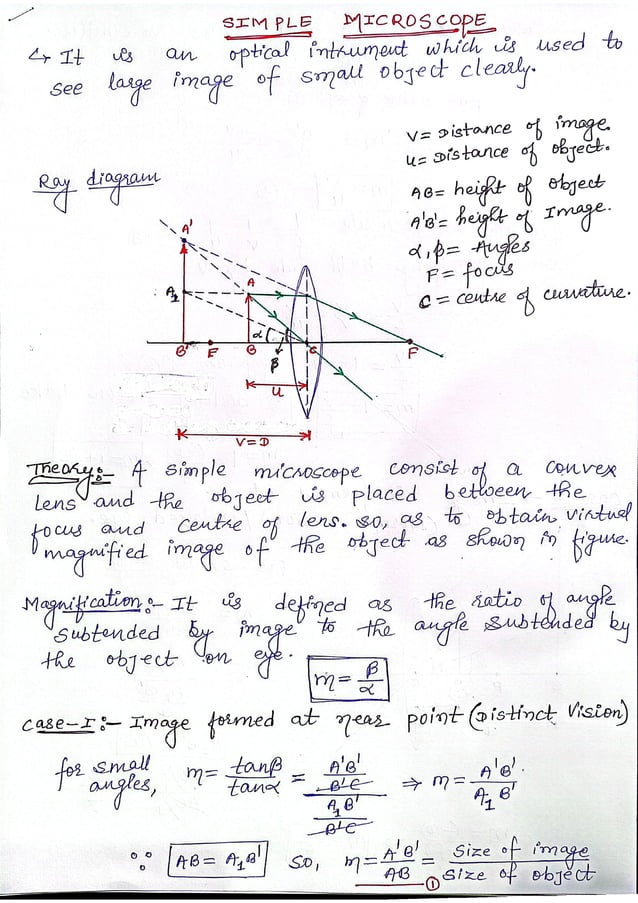 SIMPLE MICROSCOPE
↳ It is an optical intrument which is used to
see large image of small object clearly.
V = Distance of image.
u = Distance of object.
Ray diagram
AB = height of object
A'B' = height of Image.
α, β = Angles
F = focus
C = centre of curvature.
A'
A₁
A
B'
F
B
α
β
C
F
u
V = D
Theory:- A simple microscope consist of a convex
lens and the object is placed between the
focus and centre of lens. so, as to obtain virtual
magnified image of the object as shown in figure.
Magnification:- It is defined as the ratio of angle
subtended by image to the angle subtended by
the object on eye.
m = β/α
Case-I:- Image formed at near point (Distinct Vision)
for small angles, m = tanβ/tanα = (A'B'/B'C)/(A₁B'/B'C) ⇒ m = A'B'/A₁B'
∵ AB = A₁B' so, m = A'B'/AB = Size of image/Size of object
①